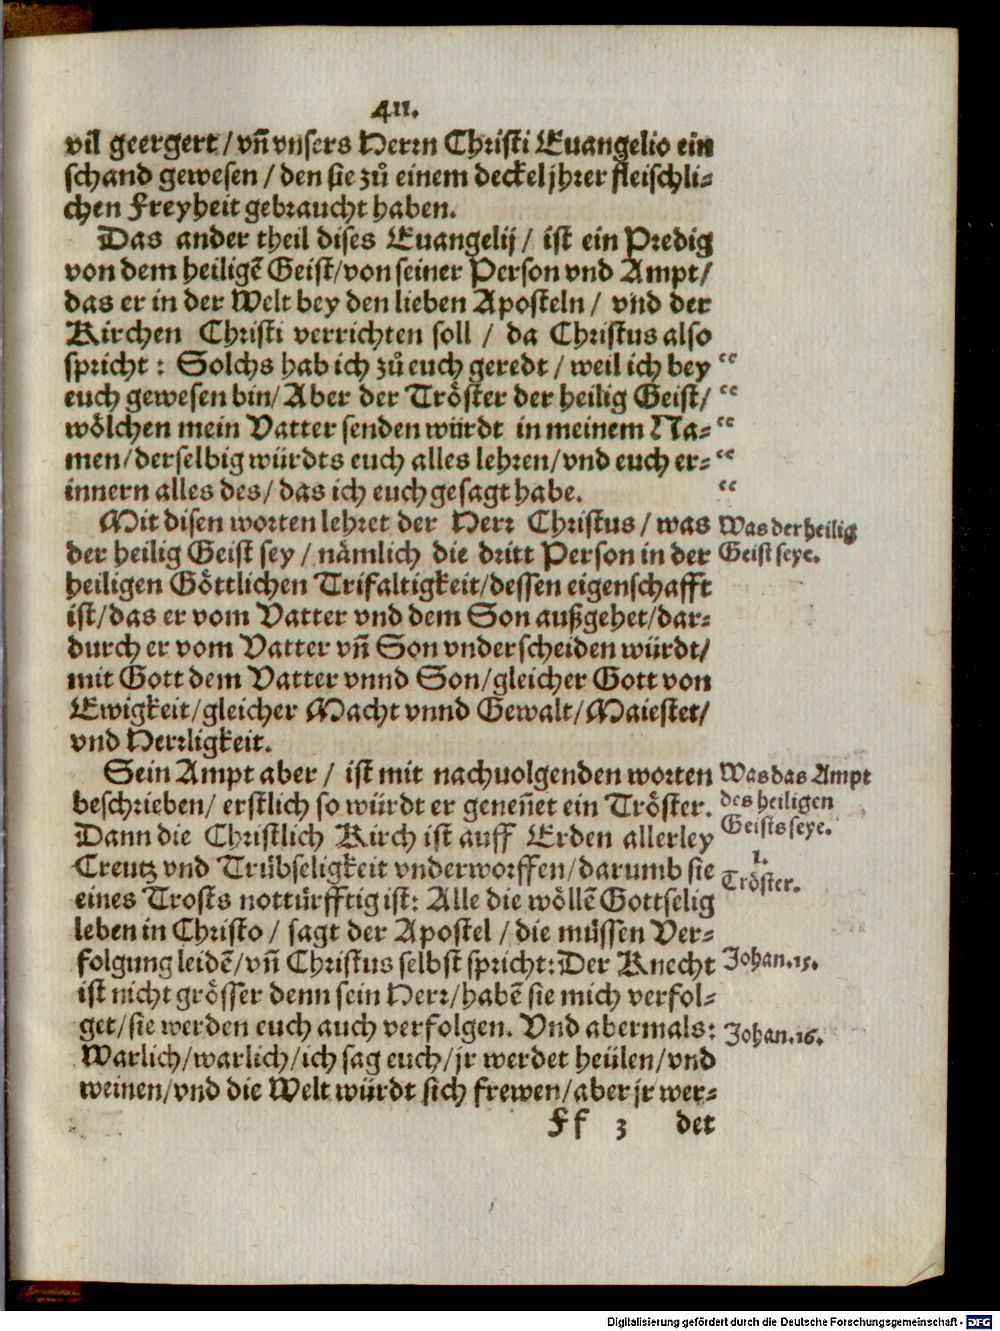 411.
vil geergert / vn̄ vnsers Herrn Christi Euangelio ein
schand gewesen / den sie zů einem deckel jhrer fleischli⸗
chen Freyheit gebraucht haben.
Das ander theil dises Euangelij / ist ein Predig
von dem heiligē Geist/von seiner Person vnd Ampt/
das er in der Welt bey den lieben Aposteln / vnd der
Kirchen Christi verrichten soll / da Christus also
spricht : Solchs hab ich zů euch geredt / weil ich bey “
euch gewesen bin/ Aber der Tröster der heilig Geist/ “
wölchen mein Vatter senden würdt in meinem Na⸗ “
men/derselbig würdts euch alles lehren/vnd euch er⸗ “
innern alles des/ das ich euch gesagt habe. “
Mit disen worten lehret der Herr Christus / was
der heilig Geist sey / nämlich die dritt Person in der
heiligen Göttlichen Trifaltigkeit/dessen eigenschafft
ist/das er vom Vatter vnd dem Son außgehet/dar⸗
durch er vom Vatter vn̄ Son vnderscheiden würdt/
mit Gott dem Vatter vnnd Son/gleicher Gott von
Ewigkeit/gleicher Macht vnnd Gewalt/Maiestet/
vnd Herrligkeit.
Was der heilig
Geist seye.
Sein Ampt aber / ist mit nachuolgenden worten
beschrieben/ erstlich so würdt er genen̄et ein Tröster.
Dann die Christlich Kirch ist auff Erden allerley
Creutz vnd Trübseligkeit vnderworffen/darumb sie
eines Trosts nottürfftig ist: Alle die wöllē Gottselig
leben in Christo / sagt der Apostel / die müssen Ver⸗
folgung leidē/vn̄ Christus selbst spricht:Der Knecht
ist nicht grösser denn sein Herr/habē sie mich verfol⸗
get/sie werden euch auch verfolgen. Vnd abermals:
Warlich/warlich/ich sag euch/jr werdet heülen/vnd
weinen/vnd die Welt würdt sich frewen/aber jr wer⸗
Was das Ampt
des heiligen
Geists seye.
1.
Tröster.
Johan.15.
Johan.16.
Ff 3 det
Digitalisierung gefördert durch die Deutsche Forschungsgemeinschaft - DFG